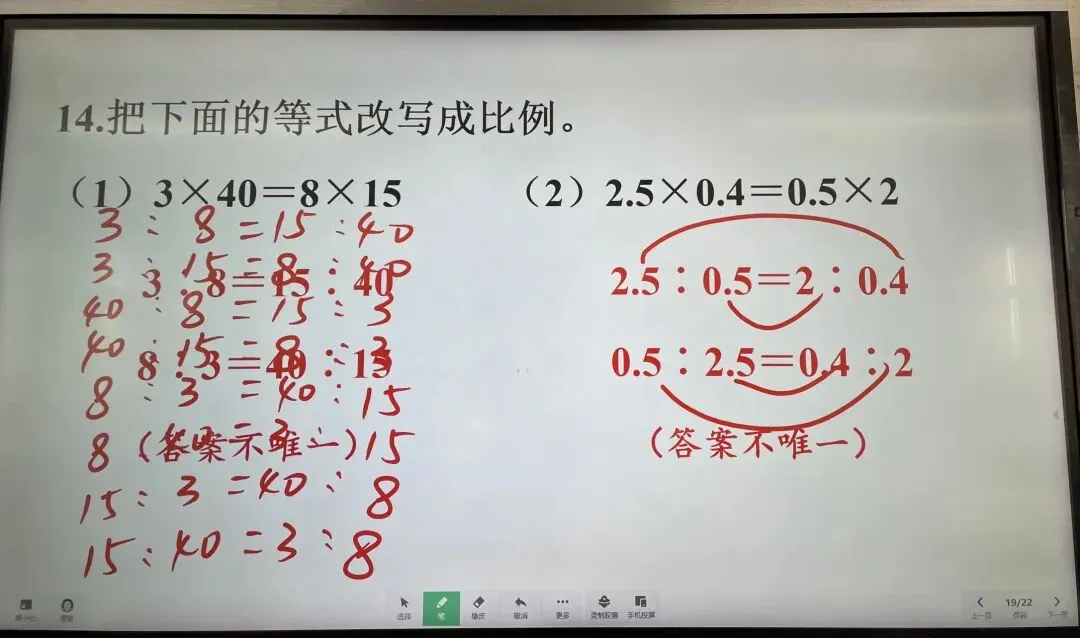 14.把下面的等式改写成比例。
（1）3×40＝8×15
（2）2.5×0.4＝0.5×2
3 : 8 = 15 : 40
3 : 15 = 8 : 40
3∶8＝15∶40
40 : 8 = 15 : 3
40 : 15 = 8 : 3
8∶3＝40∶15
8 : 3 = 40 : 15
8 = 3 : 15
(答案不唯一)
15 : 3 = 40 : 8
15 : 40 = 3 : 8
2.5∶0.5＝2∶0.4
0.5∶2.5＝0.4∶2
(答案不唯一)
选择 笔 橡皮 撤消 更多 录制胶囊 手机投屏
19/22
上一页 页码 下一页